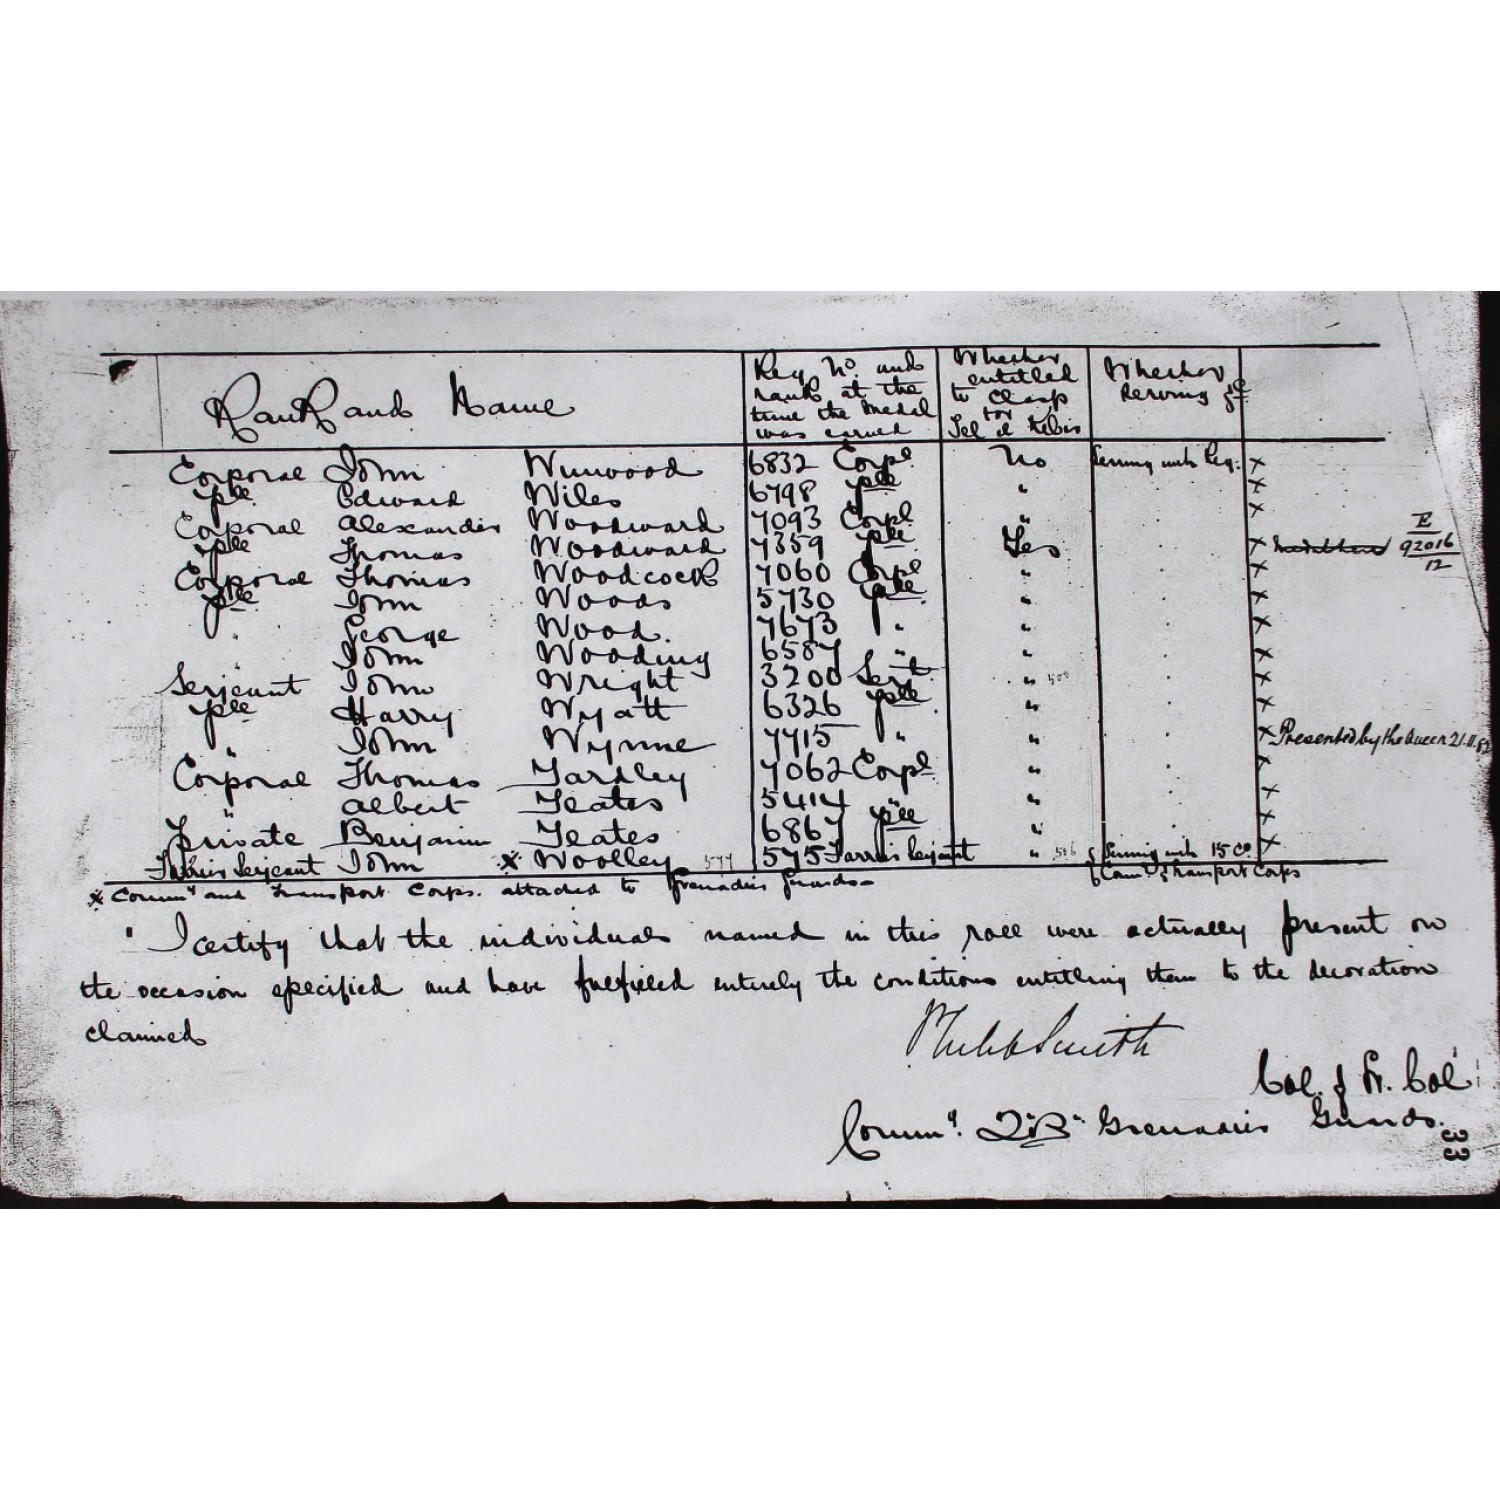 Rank and Name
Reg No. and rank at the time the Medal was earned
Whether entitled to Clasp for Tel el Kebir
Whether serving &c
Corporal John Winwood 6832 Corpl. No Serving with Reg. x
Pte Edward Wiles 6798 Pte " x
Corporal Alexander Woodward 7093 Corpl. " x
Pte Thomas Woodward 7359 Pte Yes x E 92016/12
Corporal Thomas Woodcock 7060 Corpl " x
Pte John Woods 5730 Pte " x
" George Wood. 7673 " " x
" John Wooding 6587 " " x
Serjeant John Wright 3200 Serjt " 500 x
Pte Harry Wyatt 6326 Pte " x
" John Wynne 7715 " " x Presented by the Queen 21.11.82
Corporal Thomas Yardley 7062 Corpl " x
" Albert Yeates 5414 " " x
Private Benjamin Yeates 6867 Pte " x
Farrier Serjeant John x Woolley 577 575 Farrier Serjeant " 506 Serving with 15 Co. x
Comt. & Transport Corps
x Commt and Transport Corps. attached to Grenadier Guards-
" I certify that the individuals named in this roll were actually present on
the occasion specified and have fulfilled entirely the conditions entitling them to the decoration
claimed
Philip Smith
Col. & Lt. Col
Commg. 2nd Bn Grenadier Guards.
33